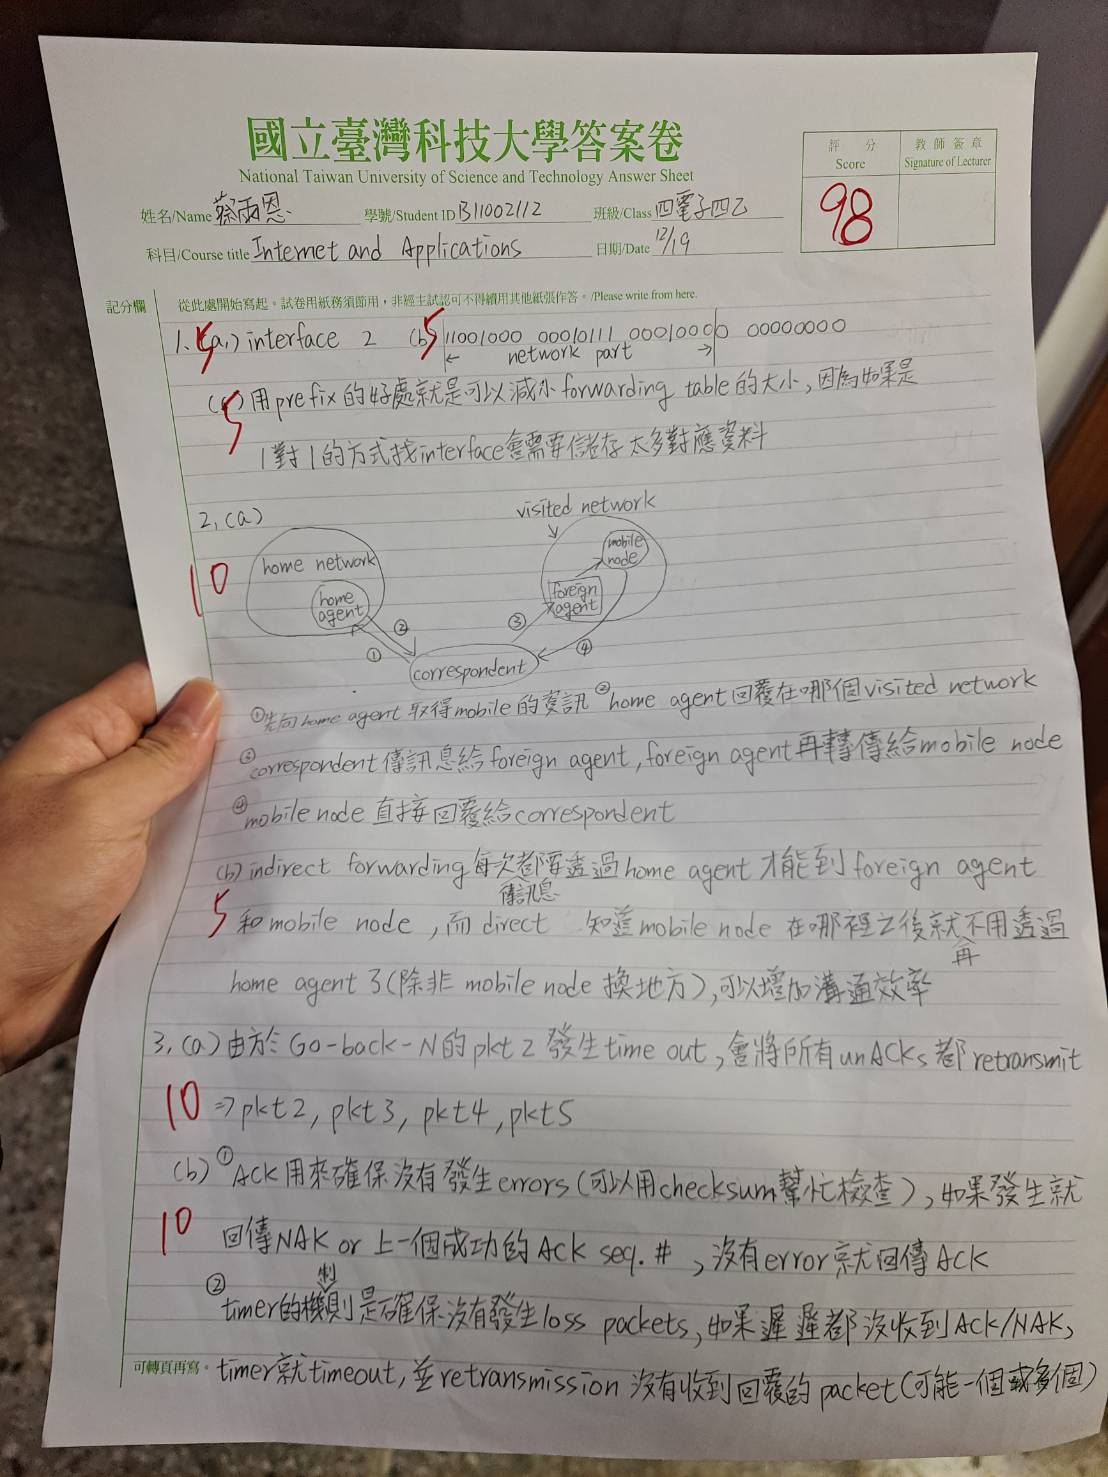 國立臺灣科技大學答案卷
National Taiwan University of Science and Technology Answer Sheet
評分 Score
教師簽章 Signature of Lecturer
98
姓名/Name 蔡雨恩 學號/Student ID B11002112 班級/Class 四電子四乙
科目/Course title Internet and Applications 日期/Date 12/19
記分欄 從此處開始寫起。試卷用紙務須節用,非經主試認可不得續用其他紙張作答。/Please write from here.
1. 5 (a) interface 2 (b) 5 11001000 00010111 00010000 00000000
← network part →
5 (c) 用prefix的好處就是可以減小forwarding table的大小,因為如果是
1對1的方式找interface會需要儲存太多對應資料
2. (a)
visited network
10
home network
home agent
mobile node
foreign agent
① ② ③ ④
correspondent
①先向home agent取得mobile的資訊 ②home agent回覆在哪個visited network
③correspondent傳訊息給foreign agent, foreign agent再轉傳給mobile node
④mobile node直接回覆給correspondent
(b) indirect forwarding每次都要透過home agent才能到foreign agent
5 和mobile node,而direct傳訊息 知道mobile node在哪裡之後就不用再透過
home agent了(除非mobile node換地方),可以增加溝通效率
3. (a) 由於Go-back-N的pkt2發生time out,會將所有unACKs都retransmit
10 ⇒ pkt2, pkt3, pkt4, pkt5
(b) ①ACK用來確保沒有發生errors(可以用checksum幫忙檢查),如果發生就
10 回傳NAK or 上一個成功的ACK seq. #,沒有error就回傳ACK
②timer的機制是確保沒有發生loss packets,如果遲遲都沒收到ACK/NAK,
可轉頁再寫。 timer就timeout,並retransmission沒有收到回覆的packet(可能一個或多個)